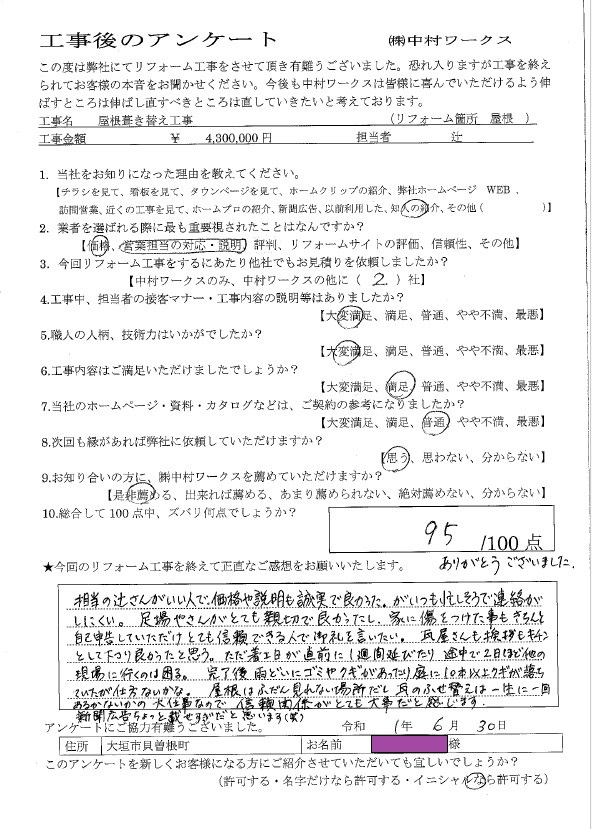 工事後のアンケート ㈱中村ワークス
この度は弊社にてリフォーム工事をさせて頂き有難うございました。恐れ入りますが工事を終え
られてお客様の本音をお聞かせください。今後も中村ワークスは皆様に喜んでいただけるよう伸
ばすところは伸ばし直すべきところは直していきたいと考えております。
工事名 屋根葺き替え工事 (リフォーム箇所 屋根 )
工事金額 ¥ 4,300,000円 担当者 辻
1. 当社をお知りになった理由を教えてください。
【チラシを見て、看板を見て、タウンページを見て、ホームクリップの紹介、弊社ホームページ WEB 、
訪問営業、近くの工事を見て、ホームプロの紹介、新聞広告、以前利用した、知人の紹介、その他( )】
2. 業者を選ばれる際に最も重要視されたことはなんですか?
【価格、営業担当の対応・説明、評判、リフォームサイトの評価、信頼性、その他】
3. 今回リフォーム工事をするにあたり他社でもお見積りを依頼しましたか?
【中村ワークスのみ、中村ワークスの他に( 2 )社】
4.工事中、担当者の接客マナー・工事内容の説明等はありましたか?
【大変満足、満足、普通、やや不満、最悪】
5.職人の人柄、技術力はいかがでしたか?
【大変満足、満足、普通、やや不満、最悪】
6.工事内容はご満足いただけましたでしょうか?
【大変満足、満足、普通、やや不満、最悪】
7.当社のホームページ・資料・カタログなどは、ご契約の参考になりましたか?
【大変満足、満足、普通、やや不満、最悪】
8.次回も縁があれば弊社に依頼していただけますか?
【思う、思わない、分からない】
9.お知り合いの方に、㈱中村ワークスを薦めていただけますか?
【是非薦める、出来れば薦める、あまり薦められない、絶対薦めない、分からない】
10.総合して100点中、ズバリ何点でしょうか?
95 /100点
★今回のリフォーム工事を終えて正直なご感想をお願いいたします。 ありがとうございました。
担当の辻さんがいい人で、価格や説明も誠実で良かった。がいつも忙しそうで連絡が
しにくい。足場やさんがとても親切で良かったし、家に傷をつけた事もきちんと
自己申告していただけとても信頼できる人で御礼を言いたい。瓦屋さんも挨拶もキチン
として下さり良かったと思う。ただ着工日が直前に1週間延びたり途中で2日ほど他の
現場に行くのは困る。完了後雨どいにゴミやクギがあったり庭に10本以上クギが落ち
ていたが仕方ないかな。屋根はふだん見れない場所だし瓦のふせ替えは一生に一回
あるかないかの大仕事なので信頼関係がとても大事だと感じます。
新聞広告ちょっと載せすぎだと思います(笑)
アンケートにご協力有難うございました。 令和 1年 6月 30日
住所 大垣市貝曽根町 お名前 様
このアンケートを新しくお客様になる方にご紹介させていただいても宜しいでしょうか?
(許可する・名字だけなら許可する・イニシャルなら許可する)